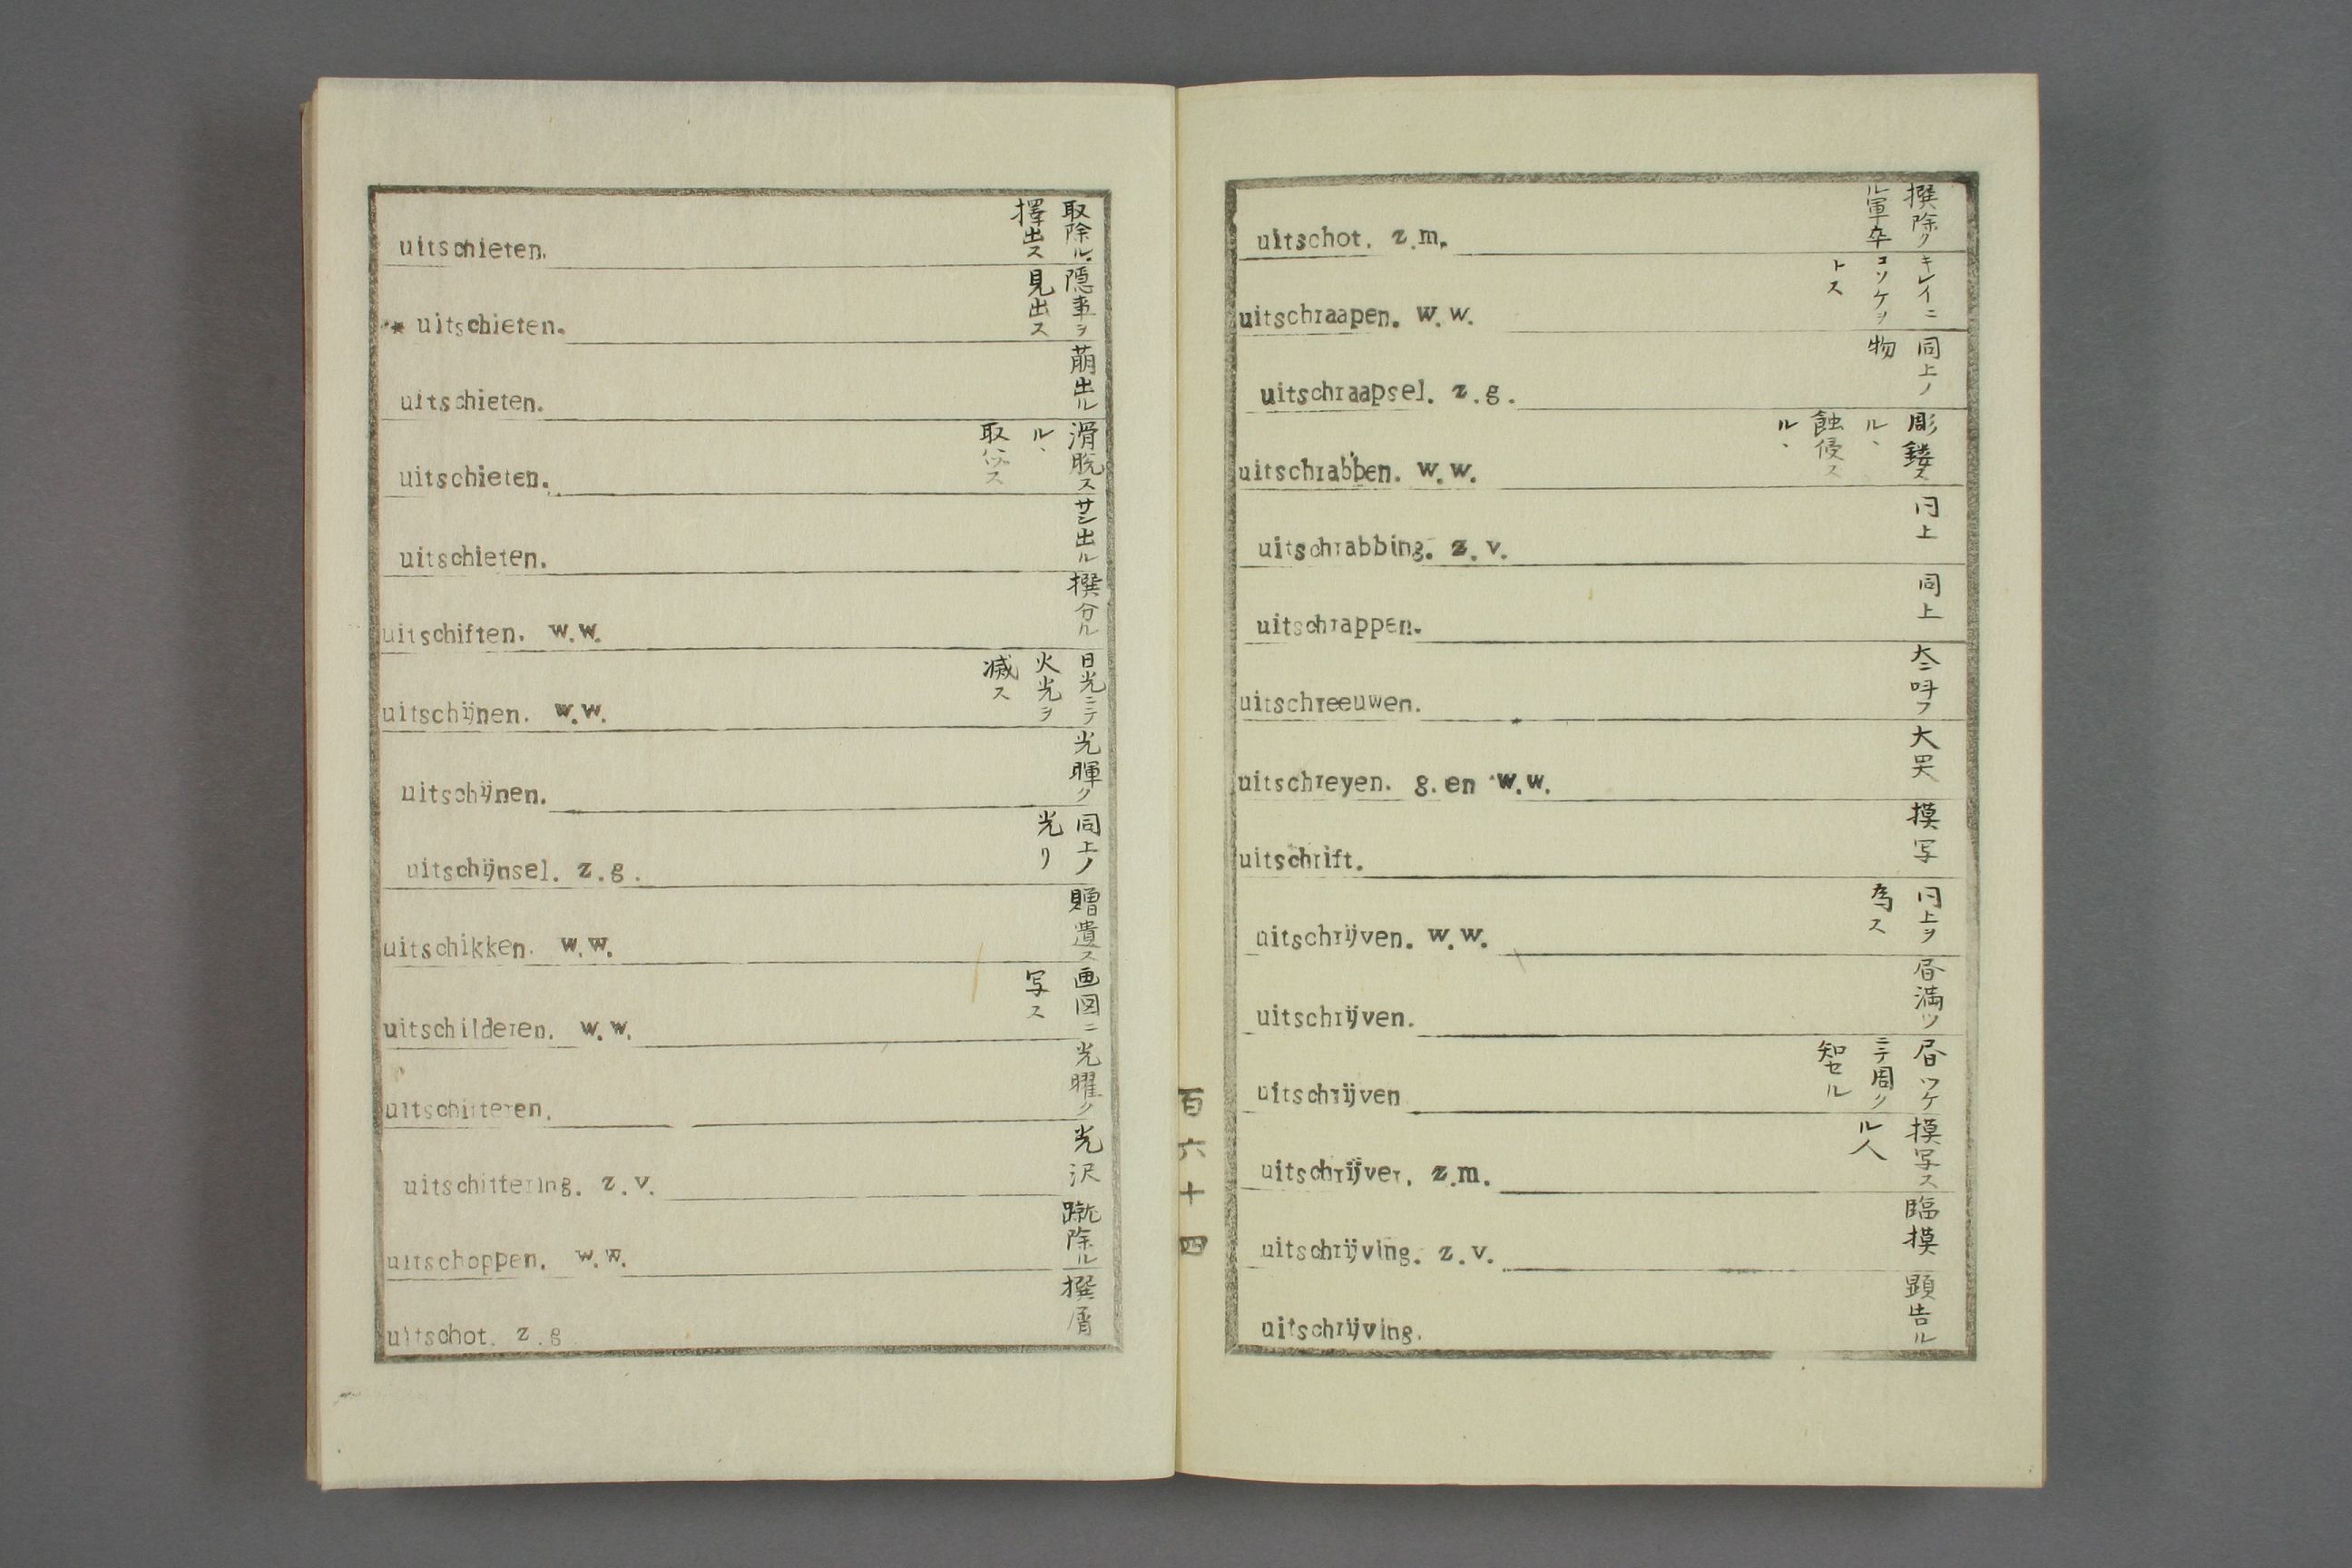 uitschieten. 取除ル、擇出ス
* uitschieten. 隠事ヲ見出ス
uitschieten. 萠出ル
uitschieten. 滑脱スル、取ハヅス
uitschieten. サシ出ル
uitschiften. w.w. 撰分ル
uitschijnen. w.w. 日光ニテ火光ヲ滅ス
uitschijnen. 光暉ク
uitschijnsel. z.g. 同上ノ光リ
uitschikken. w.w. 贈遺ス
uitschilderen. w.w. 画図ニ写ス
uitschitteren. 光曜ク
uitschittering. z.v. 光沢
uitschoppen. w.w. 蹴除ル
uitschot. z.g 撰屑
uitschot. z.m. 撰除クル軍卒
uitschraapen. w.w. キレイニコソケヲトス
uitschraapsel. z.g. 同上ノ物
uitschrabben. w.w. 彫鏤スル、蝕侵スル、
uitschrabbing. z.v. 同上
uitschrappen. 同上
uitschreeuwen. 大ニ呌フ
uitschreyen. g.en w.w. 大哭
uitschrift. 摸写
uitschrijven. w.w. 同上ヲ為ス
uitschrijven. 昏満ツ
uitschrijven 昏ツケニテ周ク知セル
uitschrijver. z.m. 摸写スル人
uitschrijving. z.v. 臨摸
uitschrijving. 顕告ル
百六十四